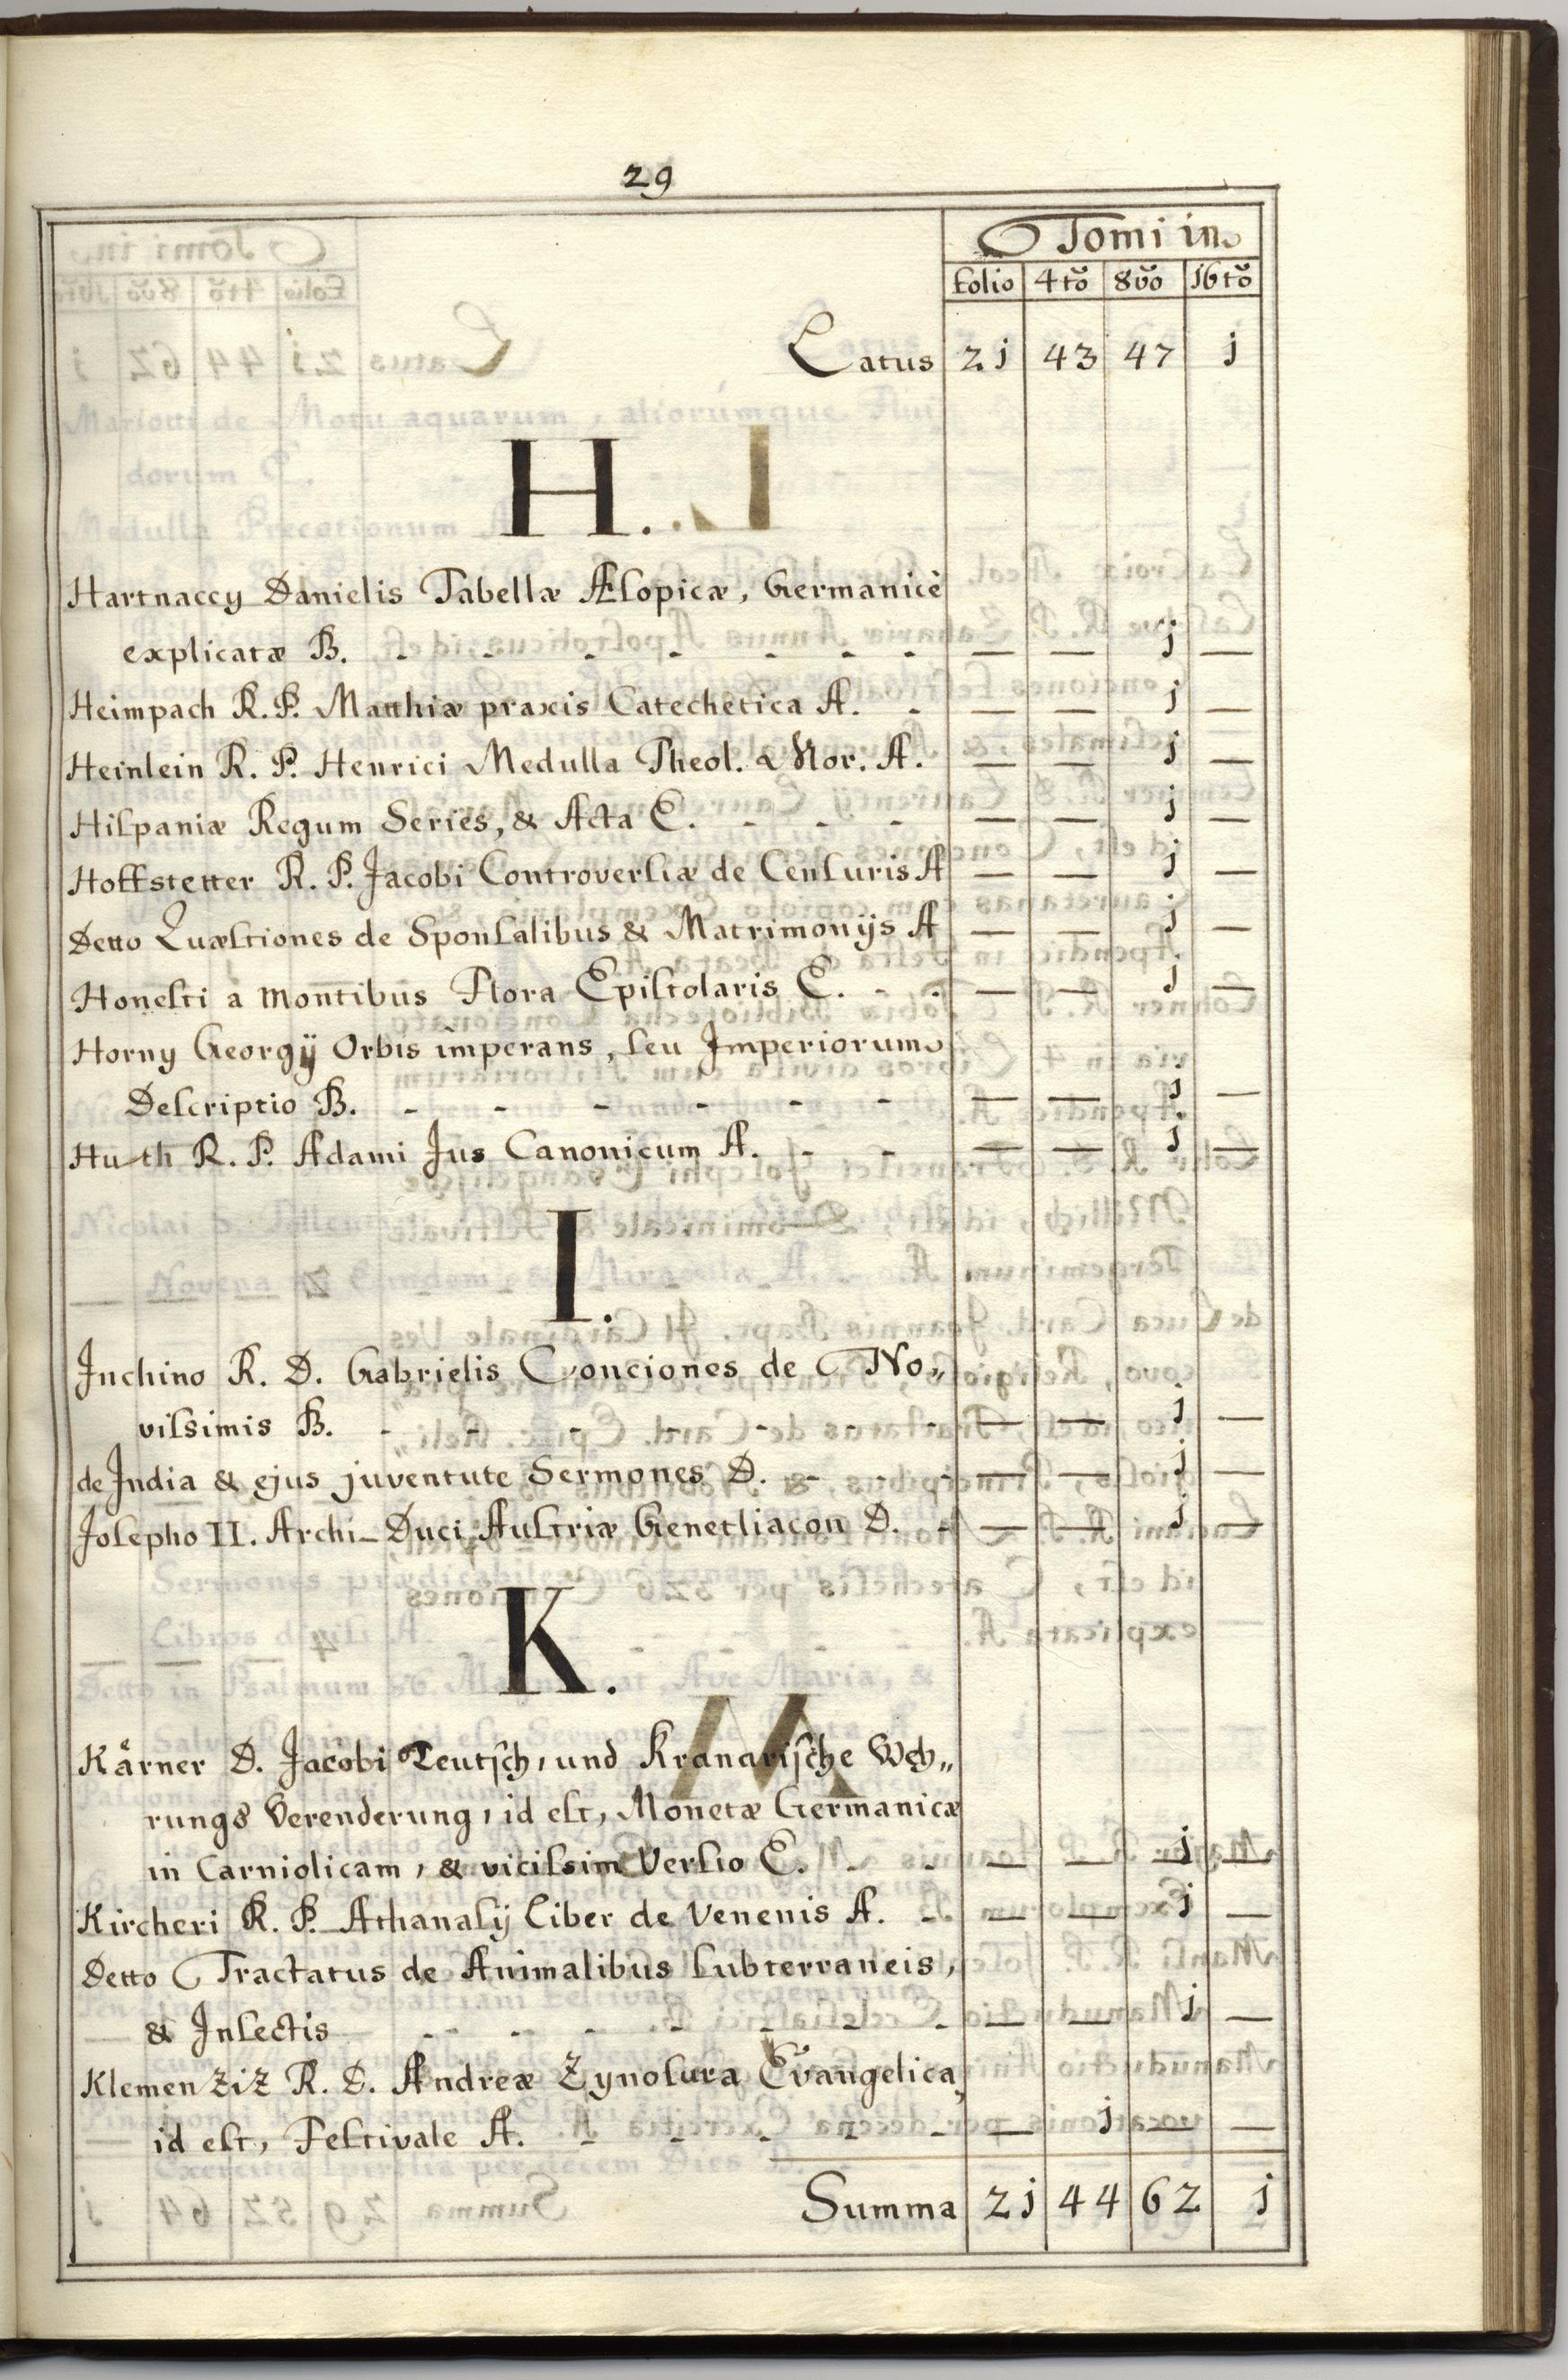 29
Tomi in
folio 4tŏ 8vŏ 16tŏ
Latus 2j 43 47 j
H.
Hartnaccy Danielis Fabellæ Æſopicæ, Germanicè
explicatæ B. - - - - - - - — — j —
Heimpach R. P. Matthiæ praxis Catechetica A. - — — j —
Heinlein R. P. Henrici Medulla Theol. Mor. A. — — j —
Hiſpaniæ Regum Series, & Acta E. - - - — — j —
Hoffstetter R. P. Jacobi Controverſiæ de Cenſuris A — — j —
Detto Quæſtiones de Sponſalibus & Matrimonijs A — — j —
Honeſti a Montibus Flora Epiſtolaris E. - - — — j —
Horny Georgij Orbis imperans, ſeu Imperiorum
Deſcriptio B. - - - - - - — — j —
Huth R. P. Adami Jus Canonicum A. - - — — j —
I.
Inchino R. D. Gabrielis Conciones de No„
viſsimis B. - - - - - - - — — j —
de India & ejus juventute Sermones D. - - - — — j —
Joſepho II. Archi-Duci Auſtriæ Genetliacon D. - — — j —
K.
Kärner D. Jacobi Teutſch, und Kranariſche Weh„
rungs Verenderung, id eſt, Monetæ Germanicæ
in Carniolicam, & viciſsim Verſio E. - - — — j —
Kircheri R. P. Athanaſij Liber de Venenis A. - — — j —
Detto Tractatus de Animalibus ſubterraneis,
& Inſectis - - - - - - - — — j —
Klemenziz R. D. Andreæ Zynoſura Evangelica,
id eſt, Feſtivale A. - - - - - — j — —
Summa 2j 44 62 j